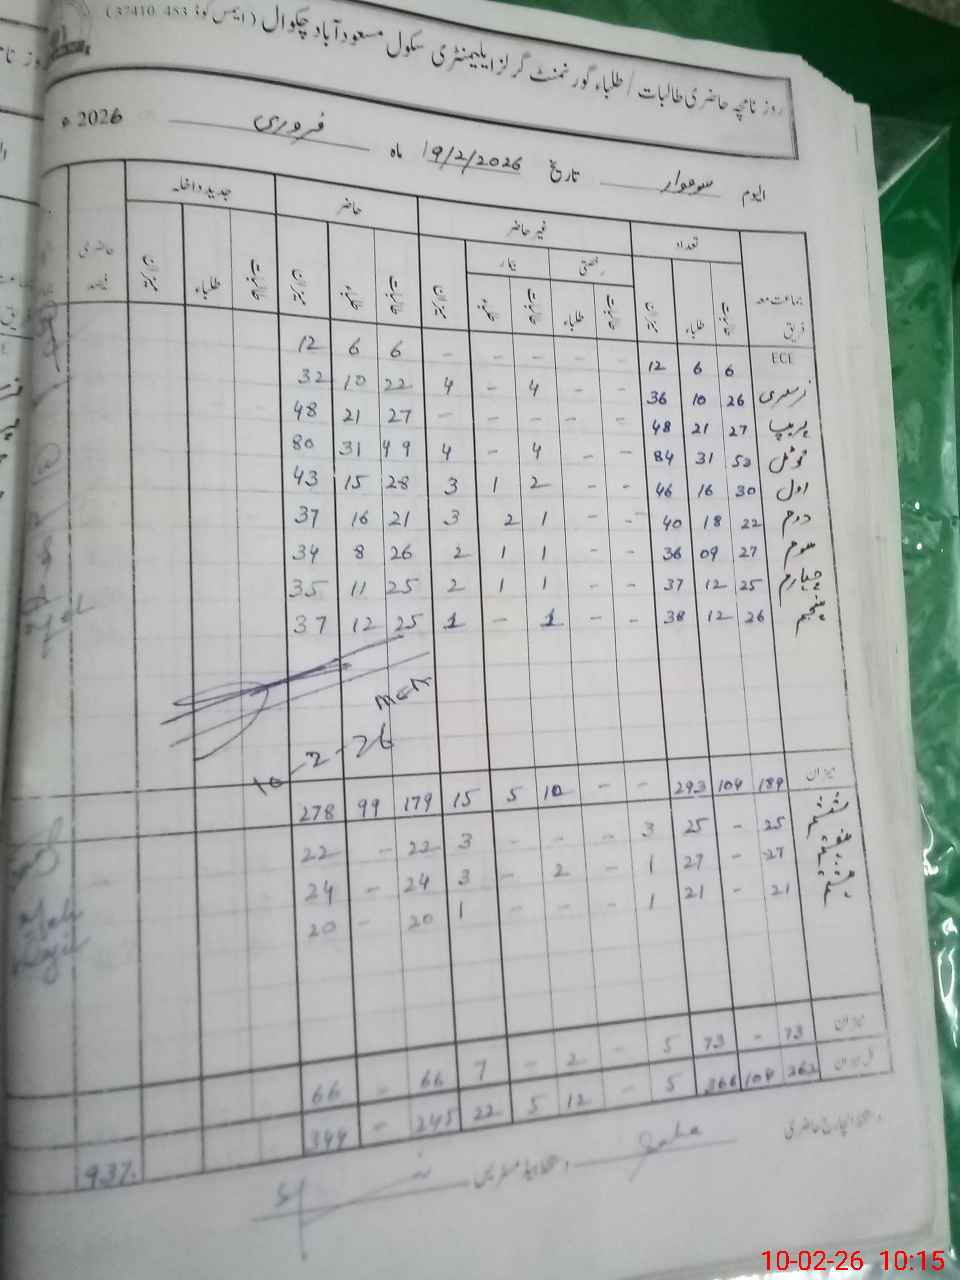 روز نامچہ حاضری طالبات / طلباء گورنمنٹ گرلز ایلیمنٹری سکول مسعود آباد چکوال (ایمس کوڈ 37410 453)
الیوم سوموار تاریخ 19/2/2026 ماہ فروری 2026ء
جماعت معہ فریق تعداد غیر حاضر حاضر جدید داخلہ حاضری فیصد
رخصتی بیمار
طالبات طلباء میزان طالبات طلباء طالبات طلباء میزان طالبات طلباء میزان طالبات طلباء میزان
ECE 6 6 12 - - - - - 6 6 12
نرسری 26 10 36 - - 4 - 4 22 10 32
پریپ 27 21 48 - - - - - 27 21 48
ٹوٹل 53 31 84 - - 4 - 4 49 31 80
اول 30 16 46 - - 2 1 3 28 15 43
دوم 22 18 40 - - 1 2 3 21 16 37
سوم 27 09 36 - - 1 1 2 26 8 34
چہارم 25 12 37 - - 1 1 2 25 11 35
پنجم 26 12 38 - - 1 - 1 25 12 37
10-2-26
میزان 189 104 293 - - 10 5 15 179 99 278
ششم 25 - 25 3 - - - 3 22 - 22
ہفتم 27 - 27 1 - 2 - 3 24 - 24
ہشتم 21 - 21 1 - - - 1 20 - 20
میزان 73 - 73 5 - 2 - 7 66 - 66
کل میزان 262 104 366 5 - 12 5 22 245 - 344 93%
دستخط انچارج حاضری دستخط ہیڈ مسٹریس
10-02-26 10:15